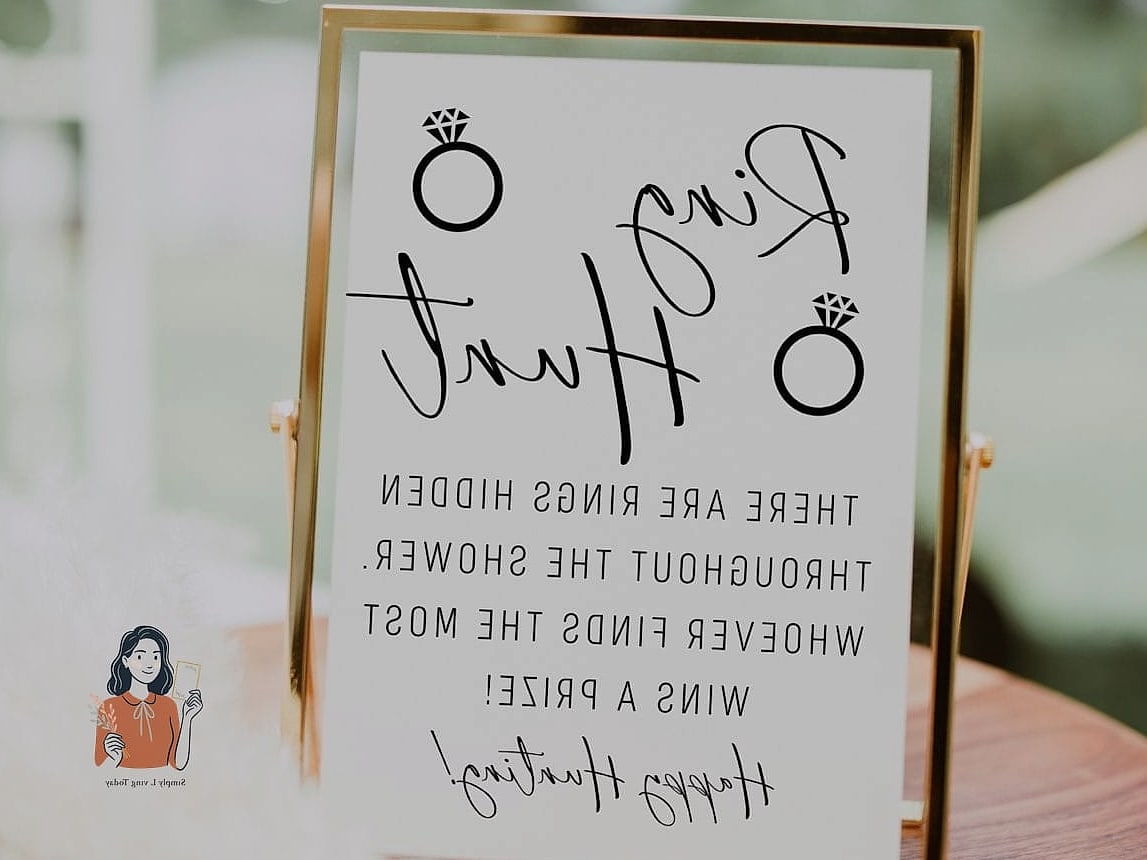 Ring
Hunt
THERE ARE RINGS HIDDEN
THROUGHOUT THE SHOWER.
WHOEVER FINDS THE MOST
WINS A PRIZE!
Happy Hunting!
Simply L ving Today